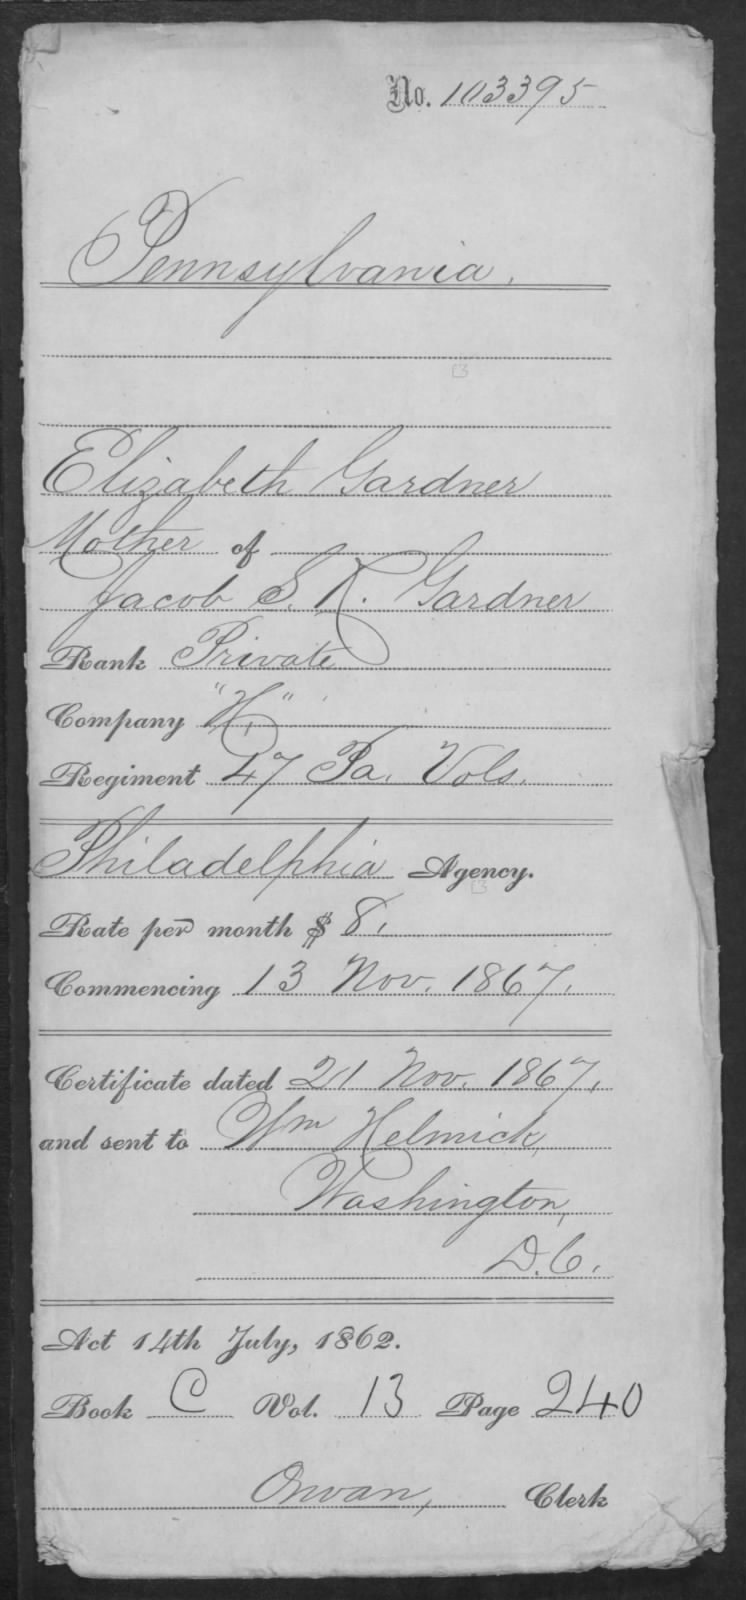 No. 103395
Pennsylvania.
Elizabeth Gardner
Mother of
Jacob S. K. Gardner
Rank Private
Company "H,"
Regiment 47 Pa. Vols.
Philadelphia Agency.
Rate per month $ 8,
Commencing 13 Nov. 1867,
Certificate dated 21 Nov. 1867,
and sent to Wm Helmick,
Washington,
D.C.
Act 14th July, 1862.
Book C Vol. 13 Page 240
Clerk